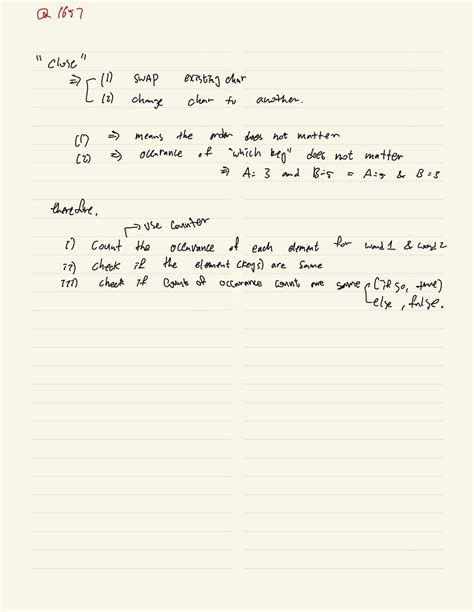 Q 1657
"close"
⇒ (1) SWAP existing char
(2) change char to another.
(1) ⇒ means the order does not matter
(2) ⇒ occurance of "which key" does not matter
⇒ A=3 and B=5 = A=5 & B=3
therefore,
→ use counter
i) Count the occurance of each element for word 1 & word 2
ii) check if the element (keys) are same
iii) check if counts of occurance count are same (If so, true)
else, false.